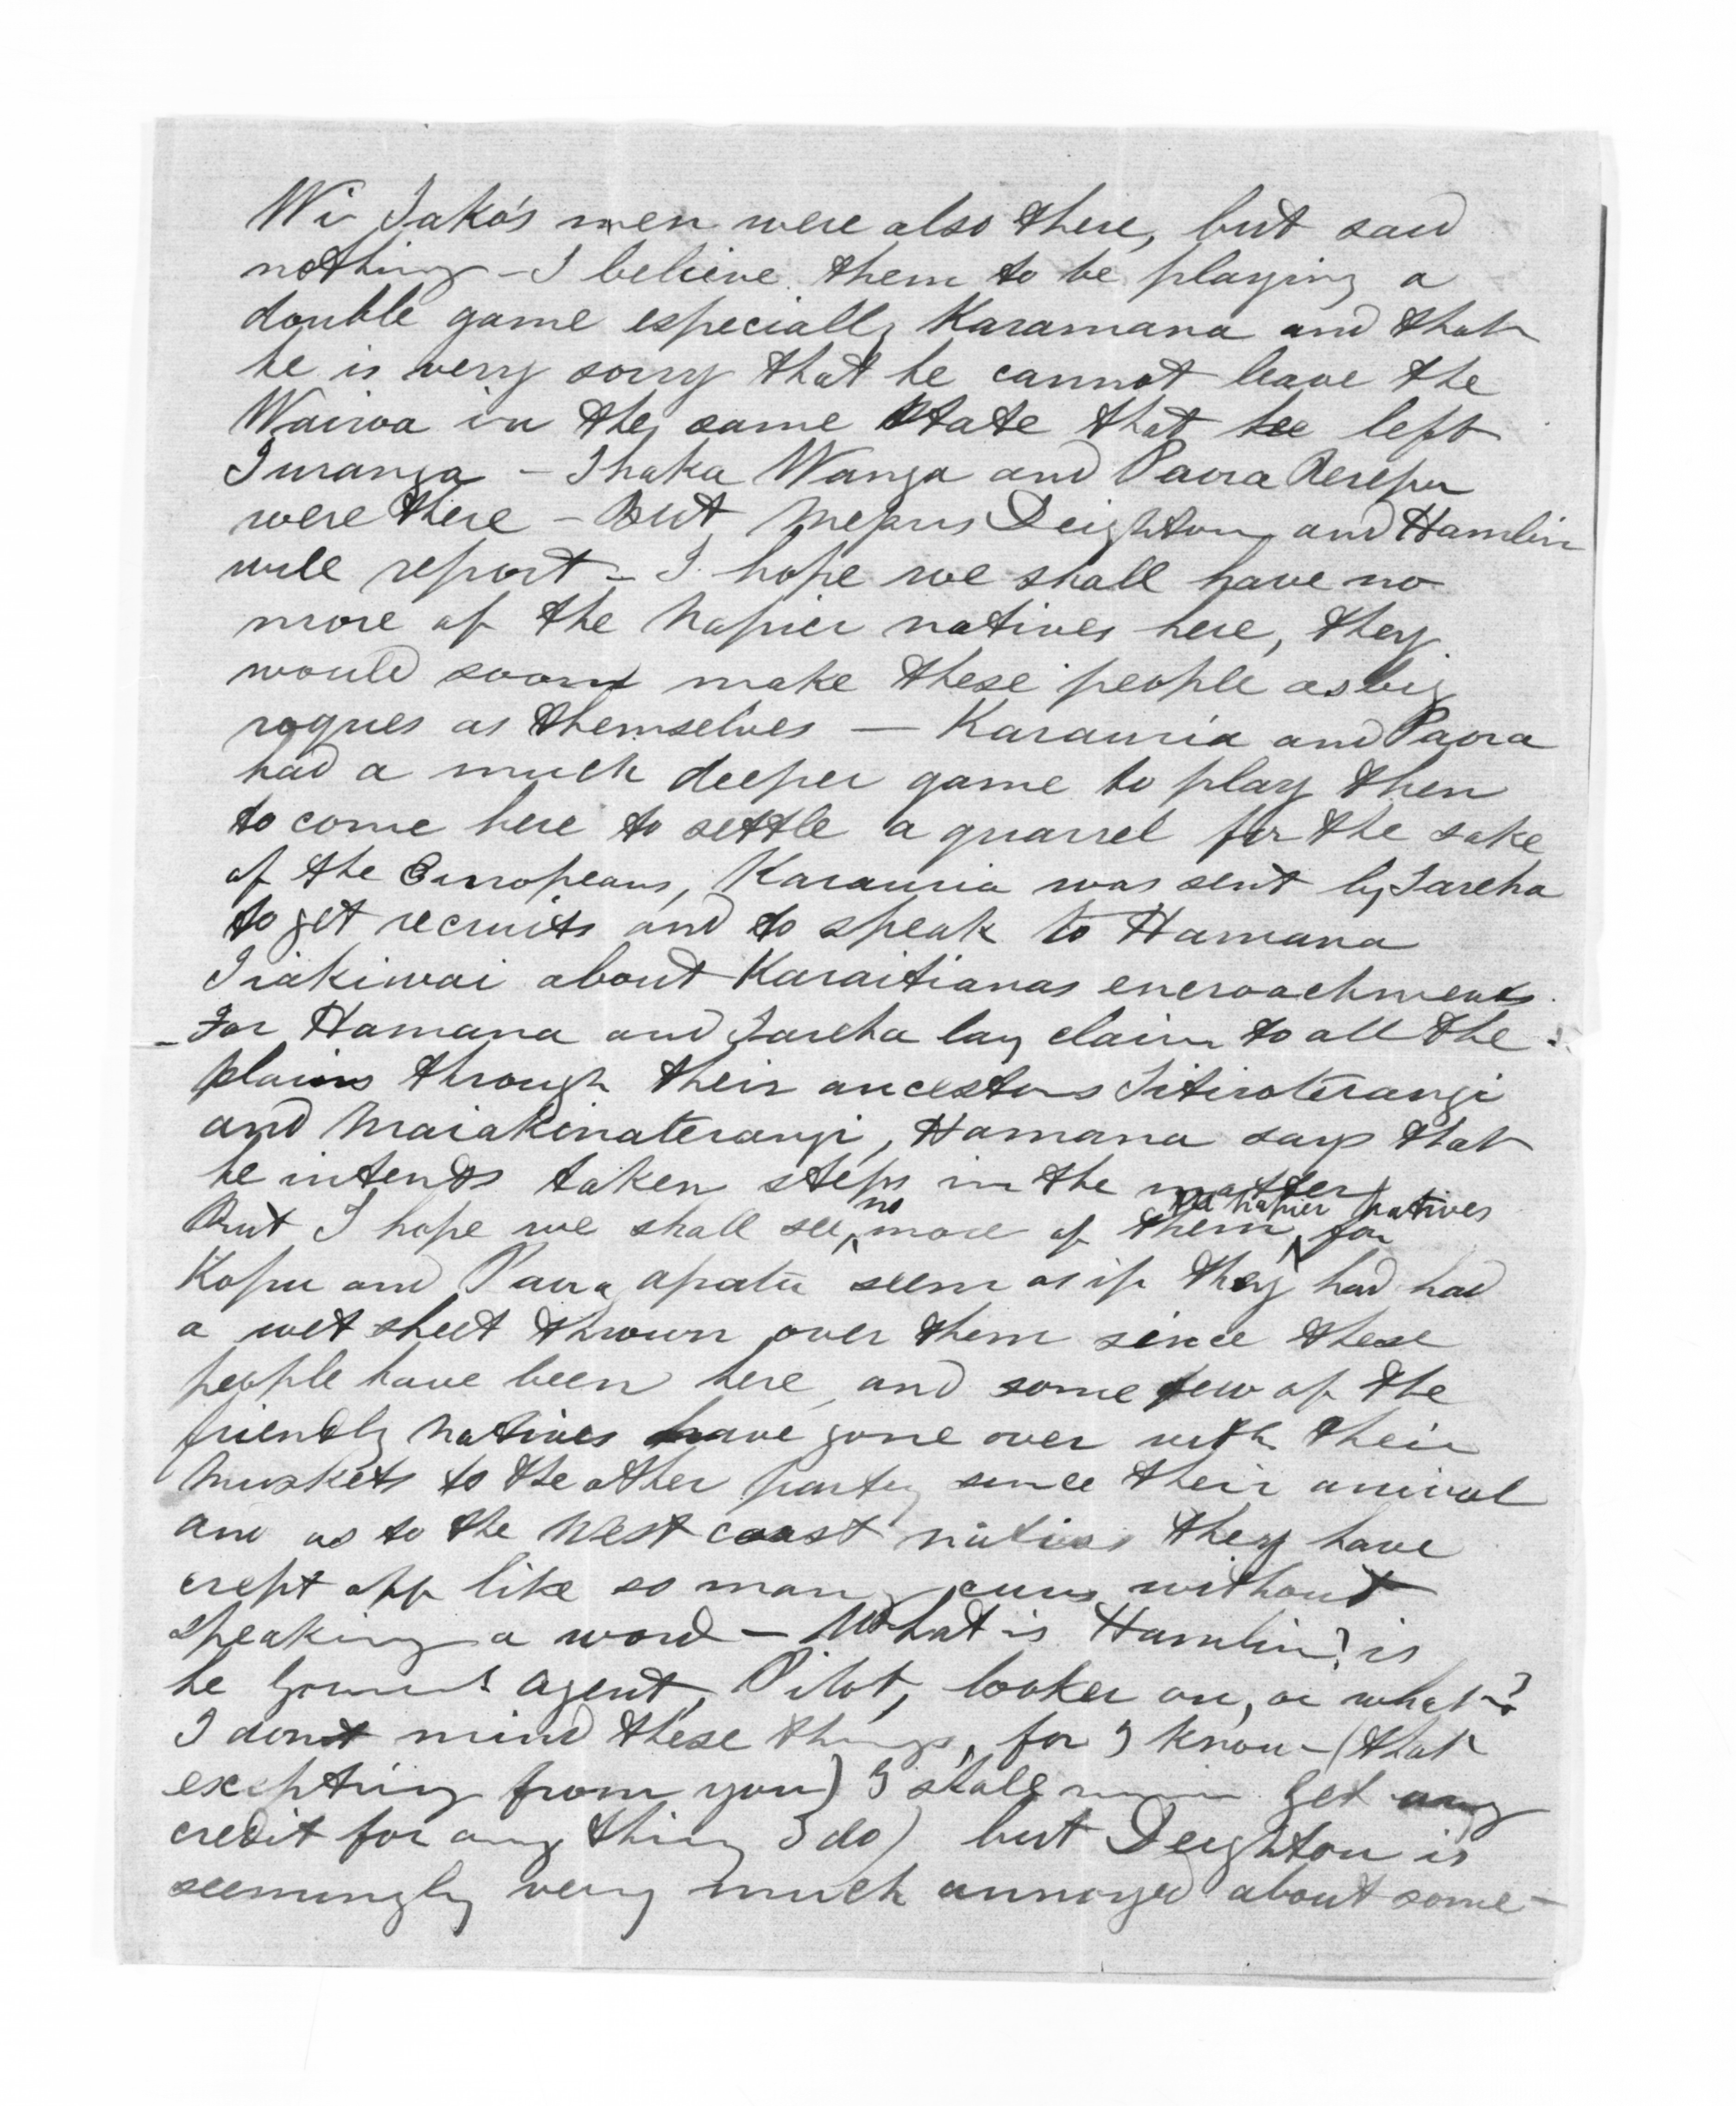 Wi Tako's men were also there, but said
nothing - I believe them to be playing a
double game especially Karamana and that
he is very sorry that he cannot leave the
Wairoa in the same state that he left
Turanga - Ihaka Wanga and Paora Rerepu
were there - But Messrs Deighton and Hamlin
will report - I hope we shall have no
more of the Napier natives here, they
would soon make these people as big
rogues as themselves — Karauria and Paora
had a much deeper game to play then
to come here to settle a quarrel for the sake
of the Europeans, Karauria was sent by Tareha
to get recruits and to speak to Hamana
Tiakiwai about Karaitianas encroachments.
- For Hamana and Tareha lay claim to all the
plains through their ancestors Titiroterangi
and Maiakinaterangi, Hamana says that
he intends taken steps in the matter
But I hope we shall see no more of them, the Napier natives for
Kopu and Paora apatu seem as if they had had
a wet sheet thrown over them since these
people have been here, and some few of the
friendly natives have gone over with their
muskets to the other party since their arrival
and as to the West coast natives they have
crept off like so many curs without
speaking a word - What is Hamlin? is
he Governmt agent, Pilot, looker on, or what?
I dont mind these things, for I know - (that
excepting from you) I shall never get any
credit for any thing I do) but Deighton is
seemingly very much annoyed about some-